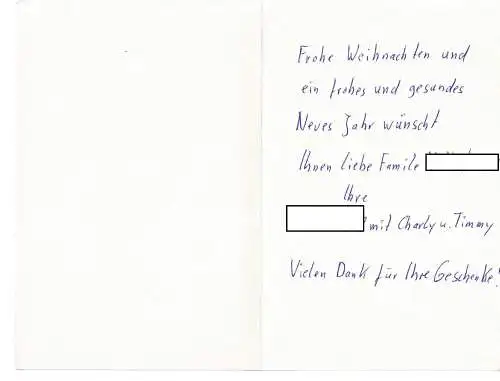 Frohe Weihnachten und
ein frohes und gesundes
Neues Jahr wünscht
Ihnen liebe Familie
Ihre
mit Charly u. Timmy
Vielen Dank für Ihre Geschenke!